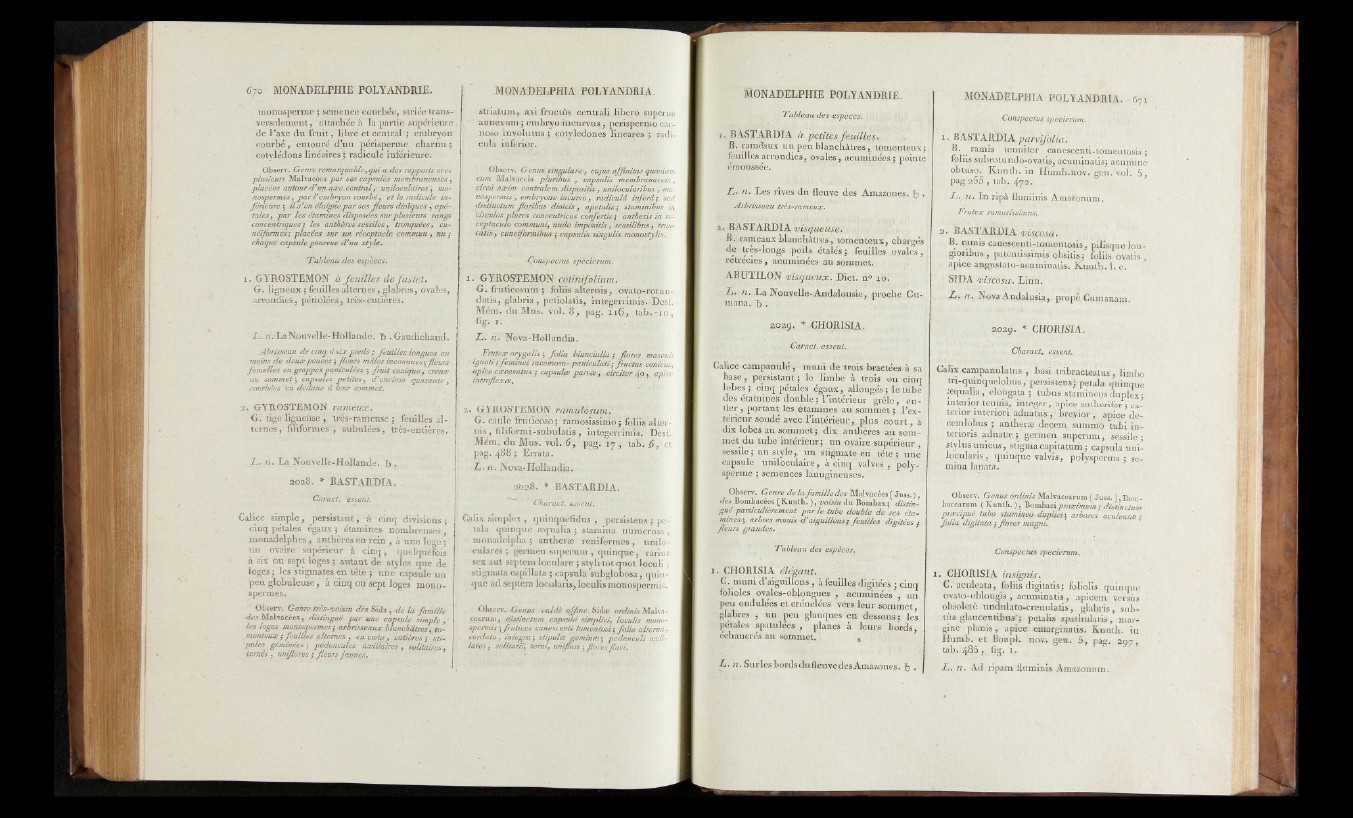 670 MONADELPHIE POLYANDRIE.
monosperme ; semence courbée, striée trans-
versalement, attachée à la partie supérieure
de l'axe du fruit, libre et central ; embryon
courbé, entouré d'un périsperme charnu ;
cotylédons linéaires ; radicule inférieure.
Observ. Genre remarquable, qui a des rapports avec
plusieurs Malvacées par ses capsules membraneuses,
placées autour d'un axe central, uniloculaires, mo-
nospermes, par l'embryon courbé, et la radicule in-
férieure ; il s'en éloigne par ses fleurs dioïques, apé-
tales, par les étamines disposées sur plusieurs rangs
concentriques ; les anthères sessiles, tronquées, cu-
néiformes ; placées sur un réceptacle commun, nu ;
chaque capsule pourvue d'un style.
Tableau des espèces.
1. GYROSTEMON à feuilles de fustet.
G. ligneux ; feuilles alternes, glabres, ovales,
arrondies, pétiolées, très-entières.
L. n. La Nouvelle-Hollande. ♄. Gaudichaud.
Abrisseau de cinq à six pieds ; feuilles longues au
moins de deux pouces ; fleurs mâles inconnues ; fleurs
femelles en grappes paniculées ; fruit conique, creux
au sommet ; capsules petites, d'environ quarante,
courbées en dedans à leur sommet.
2. GYROSTEMON rameux.
G. tige ligneuse, très-rameuse ; feuilles al-
ternes, filiformes, subulées, très-entières.
L. n. La Nouvelle-Hollande. ♄.
2028. * BASTARDIA.
Caract. essent.
Calice simple, persistant, à cinq divisions ;
cinq pétales égaux ; étamines nombreuses,
monadelphes, anthères en rein, à une loge ;
un ovaire supérieur à cinq, quelquefois
à six ou sept loges ; autant de styles que de
loges ; les stigmates en tête ; une capsule un
peu globuleuse, à cinq ou sept loges mono-
spermes.
Observ. Genre très-voisin des Sida, de la famille
des Malvacées, distingué par une capsule simple,
les loges monospermes ; arbrisseaux blanchâtres, to-
menteux ; feuilles alternes, en cœur, entières ; sti-
pules géminées ; pédoncules axillaires, solitaires,
ternés, uniflores ; fleurs jaunes.
MONADELPHIA POLYANDRIA.
striatum, axi fructûs centrali libero supernè
annexum ; embryo incurvus, perispermo car-
noso involutus ; cotyledones lineares ; radi-
cula inferior.
Observ. Genus singulare, cujus affinitas quædam
cum Malvaceis pluribus, capsulis membranaceis,
circà axim centralem dispositis, unilocularibus, mo-
nospermis, embryone incurvo, radiculâ inferâ ; sed
distinctum floribus dioicis, apetalis ; staminibus in
circulos plures concentricos confertis ; antheris in re-
ceptaculo communi, nudo impositis, sessilibus, trun-
catis, cuneiformibus ; capsulis singulis monostylis.
Conspectus specierum.
1. GYROSTEMON cotinifolium.
G. fruticosum ; foliis alternis, ovato-rotun-
datis, glabris, petiolatis, integerrimis. Desf.
Mém. du Mus. vol. 8, pag. 116, tab. 10,
fig. 1.
L. n. Nova-Hollandia.
Frutex orygalis ; folia biuncialia ; flores masculi
ignoti ; feminei racemoso-paniculati ; fructus conicus,
apice excavatus ; capsulæ parvæ, circiter 40, apice
introflexæ.
2. GYROSTEMON ramulosum.
G. caule fruticoso ; ramosissimo ; foliis alter-
nis, filiformi-subulatis, integerrimis. Desf.
Mém. du Mus. vol. 6, pag. 17, tab. 6, et
pag. 488 ; Errata.
L. n. Nova-Hollandia.
2028. * BASTARDIA.
Charact. essent.
Calix simplex, quinquefidus, persistens ; pe-
tala quinque æqualia ; stamina numerosa,
monadelpha ; antheræ reniformes, unilo-
culares ; germen superum, quinque, rarius
sex aut septem loculare ; styli tot quot loculi ;
stigmata capillata ; capsula subglobosa, quin-
que ad septem locularis, loculis monospermis.
Observ. Genus valdè affine Sidæ ordinis Malva-
cearum, distinctum capsulâ simplici, loculis mono-
spermis ; frutices canescenti tomentosi ; folia alterna,
cordata, integra ; stipulæ geminæ ; pedunculi axil-
lares, solitarii, terni, uniflori ; flores flavi.
MONADELPHIE POLYANDRIE.
Tableau des espèces.
1. BASTARDIA à petites feuilles.
B. rameaux un peu blanchâtres, tomenteux ;
feuilles arrondies, ovales, acuminées ; pointe
émoussée.
L. n. Les rives du fleuve des Amazones. ♄.
Arbrisseau très-rameux.
2. BASTARDIA visqueuse.
B. rameaux blanchâtres, tomenteux, chargés
de très-longs poils étalés ; feuilles ovales,
rétrécies, acuminées au sommet.
ABUTILON visqueux. Dict. n° 19.
L. n. La Nouvelle-Andalousie, proche Cu-
mana. ♄.
2029. * CHORISIA.
Caract. essent.
Calice campanulé, muni de trois bractées à sa
base, persistant ; le limbe à trois ou cinq
lobes ; cinq pétales égaux, allongés ; le tube
des étamines double ; l'intérieur grêle, en-
tier, portant les étamines au sommet ; l'ex-
térieur soudé avec l'intérieur, plus court, à
dix lobes au sommet ; dix anthères au som-
met du tube intérieur ; un ovaire supérieur,
sessile ; un style, un stigmate en tête ; une
capsule uniloculaire, à cinq valves, poly-
sperme ; semences lanugineuses.
Observ. Genre de la famille des Malvacées ( Juss. ),
des Bombacées ( Kunth. ), voisin du Bombax ; distin-
gué particulièrement par le tube double de ses éta-
mines ; arbres munis d'aiguillons ; feuilles digitées ;
fleurs grandes.
Tableau des espèces.
1. CHORISIA élégant.
C. muni d'aiguillons, à feuilles digitées ; cinq
folioles ovales-oblongues, acuminées, un
peu ondulées et crénelées vers leur sommet,
glabres, un peu glauques en dessous ; les
pétales spatulées, planes à leurs bords,
échancrés au sommet.
L. n. Sur les bords du fleuve des Amazones. ♄.
MONADELPHIA POLYANDRIA. 671
Conspectus specierum.
1. BASTARDIA parvifolia.
B. ramis tenuiter canescenti-tomentosis ;
foliis subrotundo-ovatis, acuminatis ; acumine
obtuso. Kunth. in Humb. nov. gen. vol. 5,
pag 255, tab. 472.
L. n. In ripâ fluminis Amazonum.
Frutex ramosissimus.
2. BASTARDIA viscosa.
B. ramis canescenti-tomentosis, pilisque lon-
gioribus, patentissimis obsitis ; foliis ovatis,
apice angustato-acuminatis. Kunth. l. c.
SIDA viscosa. Linn.
L. n. Nova Andalusia, propè Cumanam.
2029. * CHORISIA.
Charact. essent.
Calix campanulatus, basi tribracteatus, limbo
tri-quinquelobus, persistens ; petala quinque
æqualia, elongata ; tubus stamineus duplex ;
interior tenuis, integer, apice antherifer ; ex-
terior interiori adnatus, brevior, apice de-
cemlobus ; antheræ decem summo tubi in-
terioris adnatæ ; germen superum, sessile ;
stylus unicus, stigma capitatum ; capsula uni-
locularis, quinque valvis, polysperma ; se-
mina lanata.
Observ. Genus ordinis Malvacearum ( Juss. ), Bom-
bacearum ( Kunth. ), Bombaci proximum ; distinctum
præcipuè tubo stamineo duplici ; arbores aculeatæ ;
folia digitata ; flores magni.
Conspectus specierum.
1. CHORISIA insignis.
C. aculeata, foliis digitatis ; foliolis quinque
ovato-oblongis, acuminatis, apicem versùs
obsoletè undulato-crenulatis, glabris, sub-
tùs glaucentibus ; petalis spathulatis, mar-
gine planis, apice emarginatis. Kunth. in
Humb. et Bonpl. nov. gen. 5, pag. 297,
tab. 485, fig. 1.
L. n. Ad ripam fluminis Amazonum.